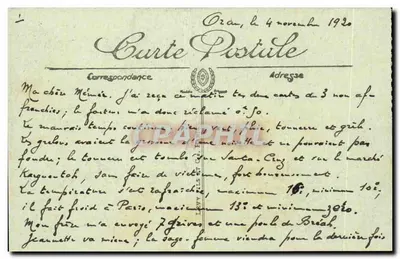 Oran, le 4 novembre 1920
Carte Postale
Correspondance
Adresse
Ma chère Mémée, J'ai reçu ce matin tes deux cartes du 3 non affranchies; le facteur m'a donc réclamé 0.50.
Le mauvais temps tonnerre et grêle.
Les grêlons avaient la et ne pouvaient pas
foudre; le tonnerre est tombé sur Santa-Cruz et sur le marché
Karguentah, sans faire de victimes, fort heureusement.
La température s'est rafraîchie, maximum 16°, minimum 10°,
il fait froid à Paris, maximum 13° et minimum
Mon frère m'a envoyé 7 grives et une poule de Bréah,
Jeannette va mieux; la sage-femme viendra pour la dernière fois